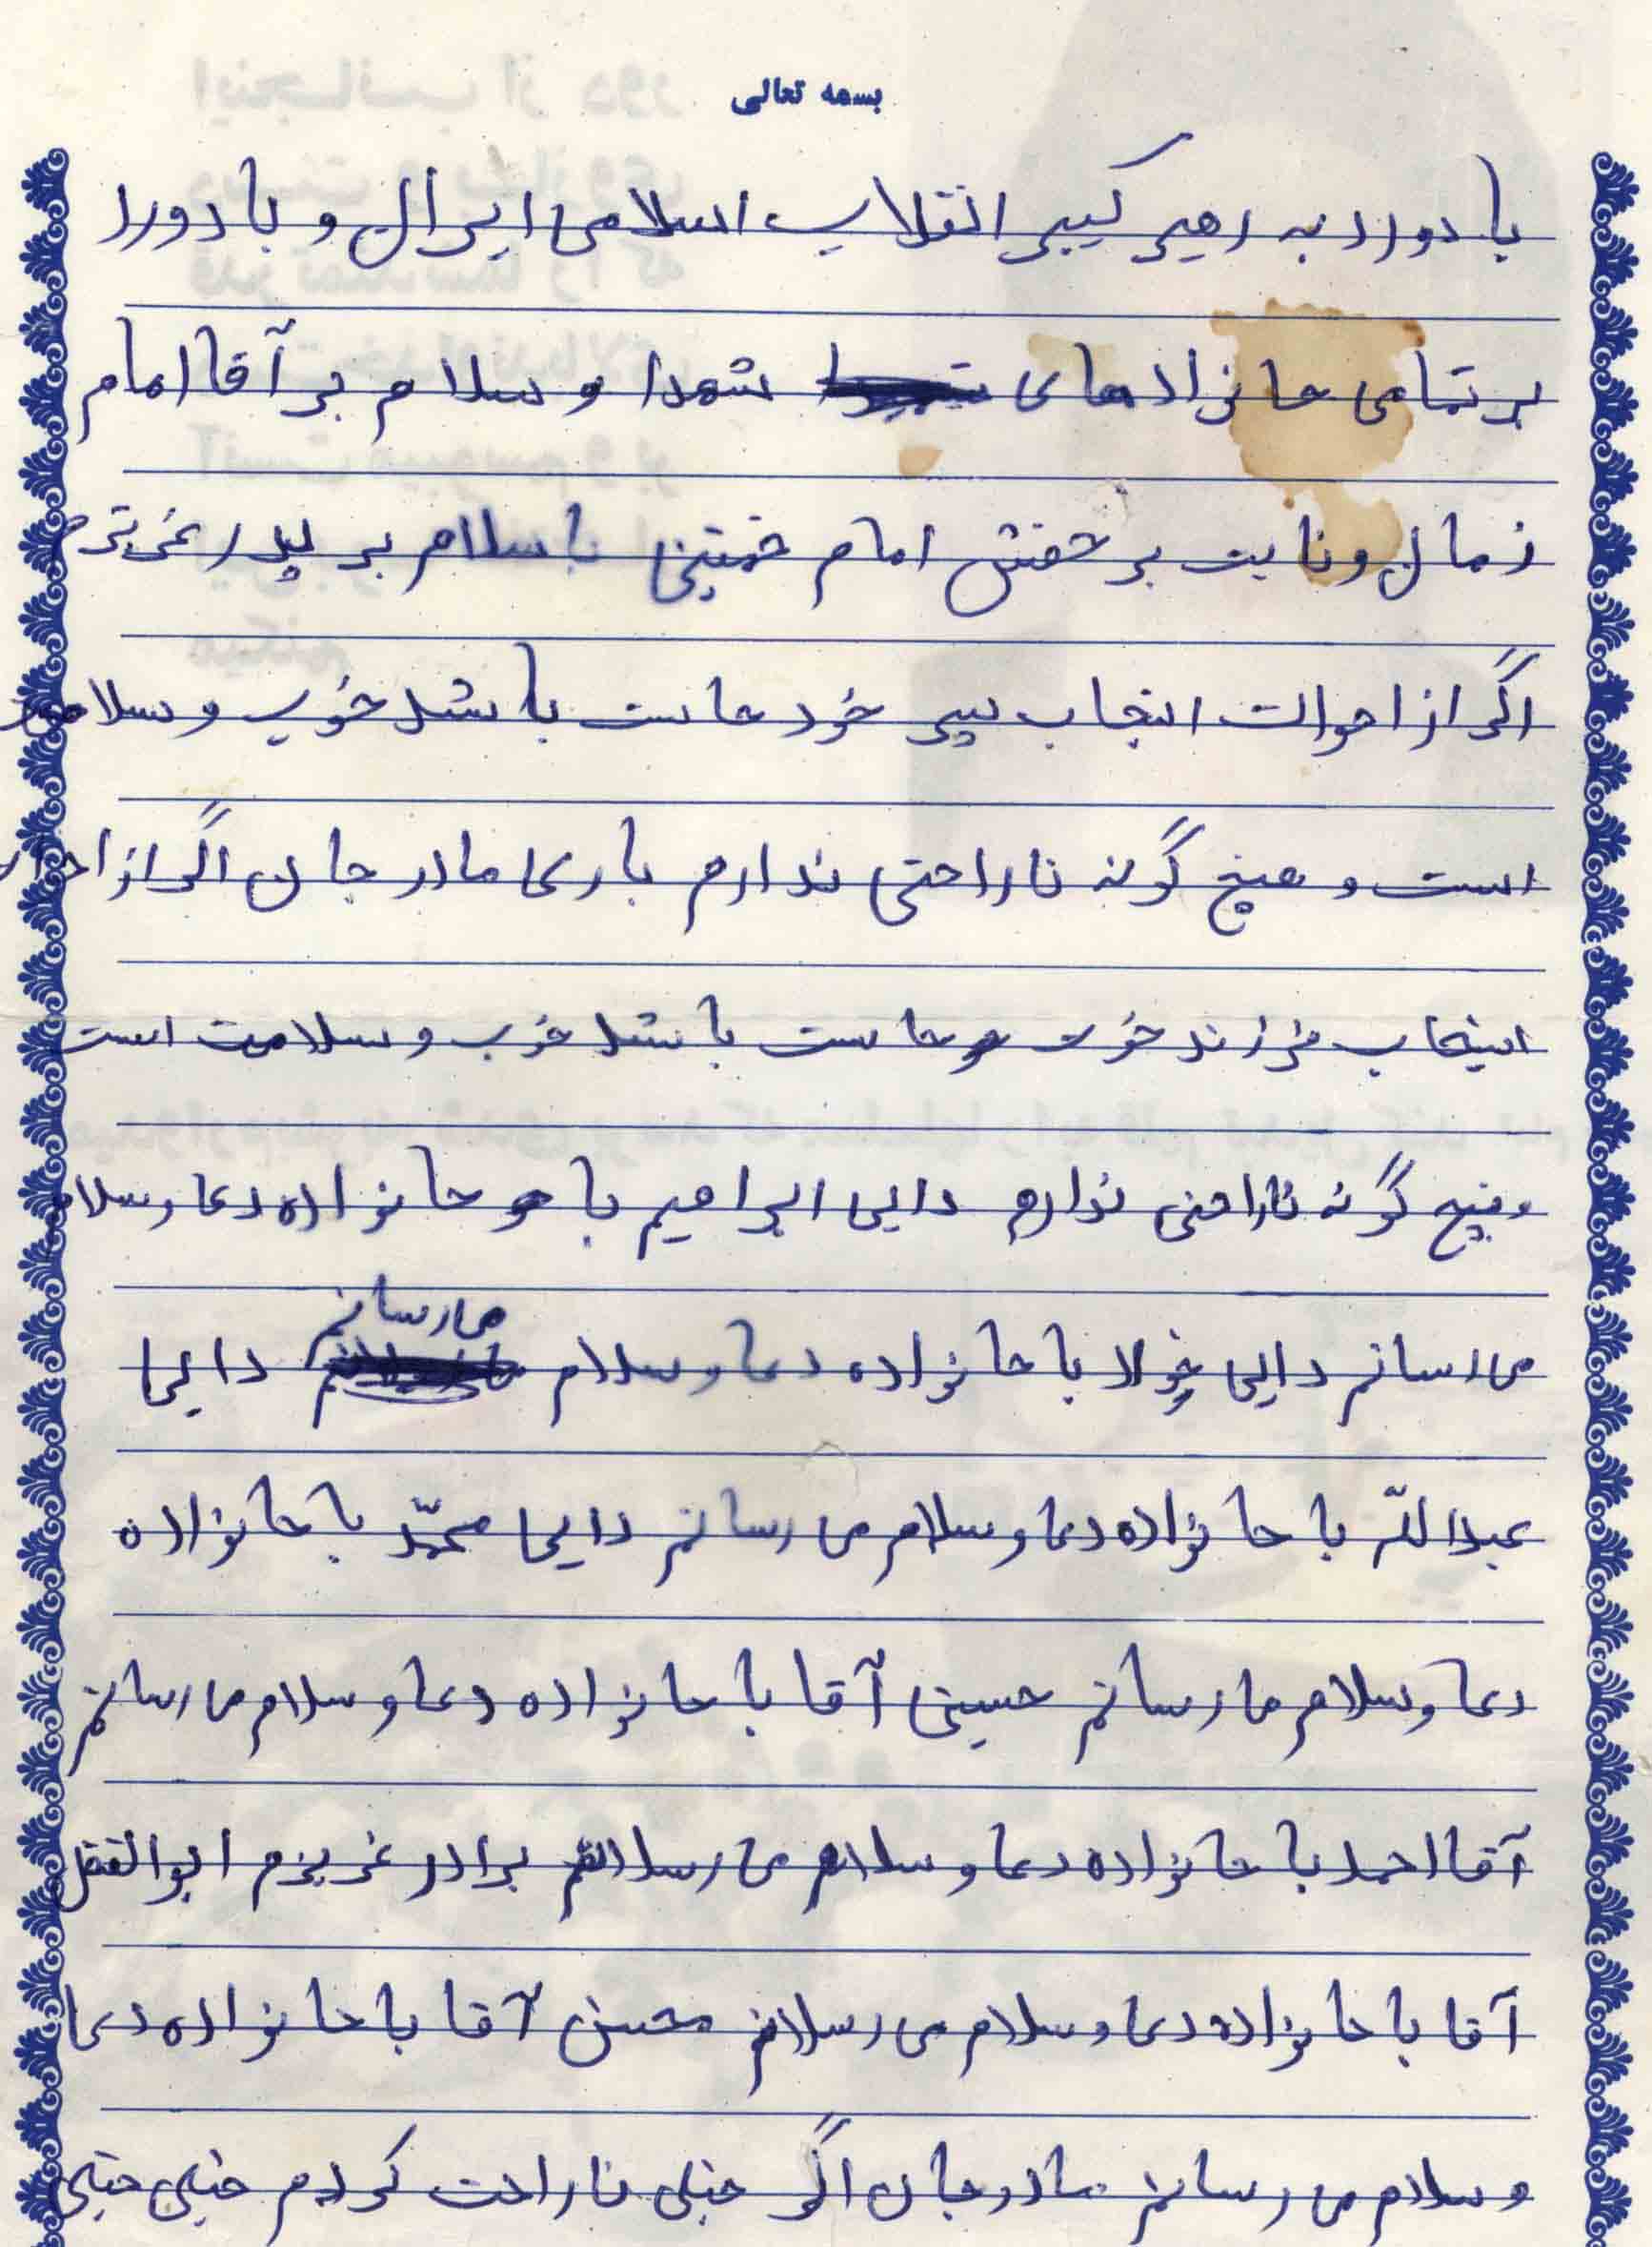 بسمه تعالی
با دورد به رهبر کبیر انقلاب اسلامی ایران و با دورد
بر تمامی خانوادهای شهدا و سلام بر آقا امام
زمان و نایب بر حقش امام خمینی با سلام بر پدر عزیزم
اگر از احوالت اینجانب پسر خود خاست باشد خوب و سلامت
است و هیچ گونه ناراحتی ندارم باری مادر جان اگر از احوال
اینجانب فرزند خوت خاست باشد خوب و سلامت است
و هیچ گونه ناراحتی ندارم دایی ابراهیم با خانواده دعا و سلام
می رسانم دایی با خانواده دعا و سلام می رسانم دایی
عبدالله با خانواده دعا و سلام می رسانم دایی محمّد با خانواده
دعا و سلام می رسانم حسین آقا با خانواده دعا و سلام می رسانم
آقا احمد با خانواده دعا و سلام می رسانم برادر عزیزم ابوالفضل
آقا با خانواده دعا و سلام می رسانم محسن آقا با خانواده دعا
و سلام می رسانم مادر جان اگر خیلی ناراحت کردم خیلی خیلی